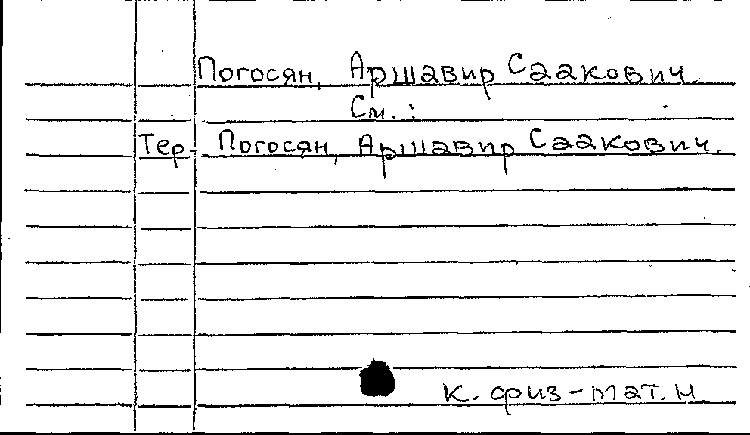 Погосян, Аршавир Саакович.
См.:
Тер-Погосян, Аршавир Саакович.
к. физ-мат. н